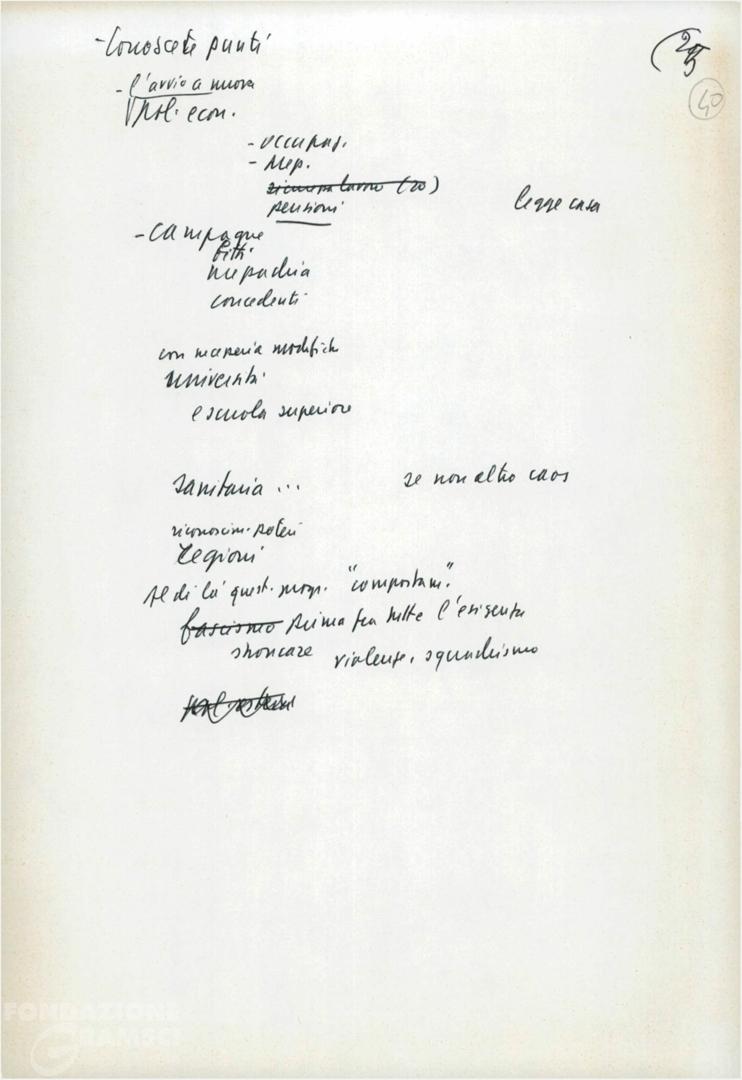 - Conoscete punti
25
40
- l'avvio a nuova
pol. econ.
- occupaz.
- Mep.
sicurezza lavoro (20)
pensioni
legge casa
- campagne
fitti
mezzadria
concedenti
con necessarie modifiche
università
e scuola superiore
sanitaria ...
se non altro caos
riconoscim. poteri
regioni
Al di là quest. progr. "comportam."
fascismo prima fra tutte l'esigenza
stroncare violenze, squadrismo
FONDAZIONE
GRAMSCI